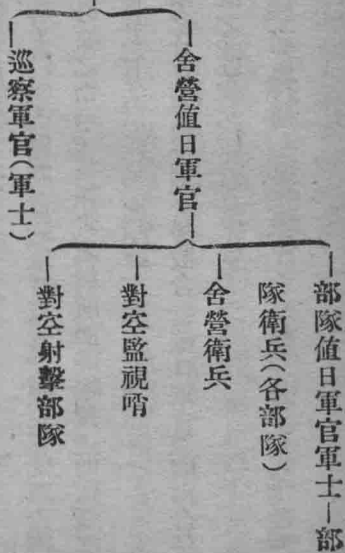 舍營值日軍官
巡察軍官(軍士)
部隊值日軍官軍士—部
隊衛兵(各部隊)
舍營衛兵
對空監視哨
對空射擊部隊